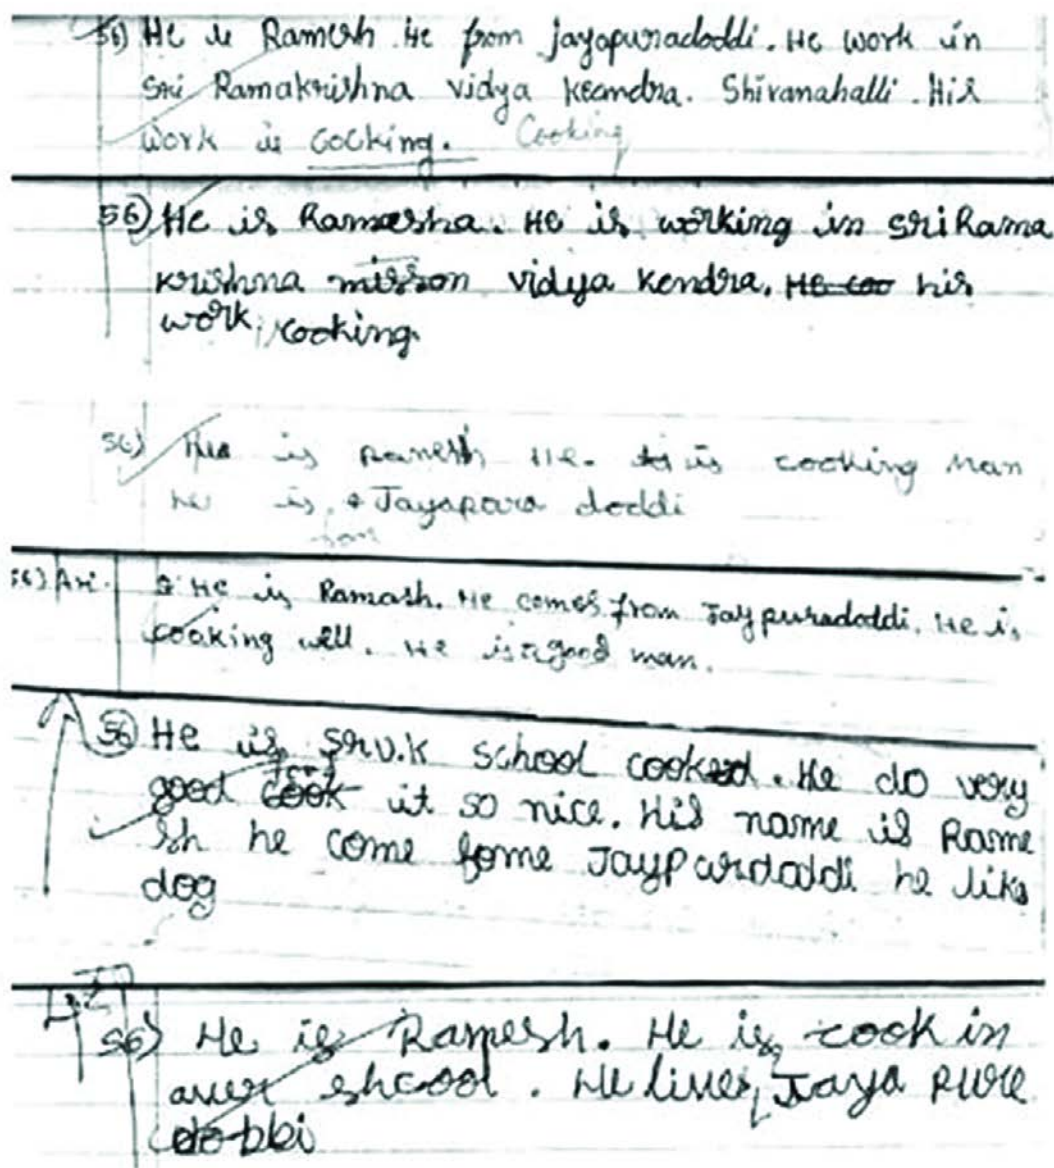 56) He is Ramesh He from jayapuradoddi. He work in
Sri Ramakrishna vidya keandra. Shivanahalli. His
work is cocking. Cooking
56) He is Ramesha. He is working in sri Rama
krishna misson vidya kendra. He coo his
work, cooking.
56) is Ramesh He. is cooking man
he is Jayapara doddi
56) He is Ramash. He comes from Jaypuradoddi. He is
cooking well. He is a good man.
56 He is SRV.K school cooked. He do very
good cook it so nice. His name is Rame
sh he come fome Jaypurdoddi he like
dog
56) He is Ramesh. He is cook in
auer shcool. He lives Jaya pure
do bbi